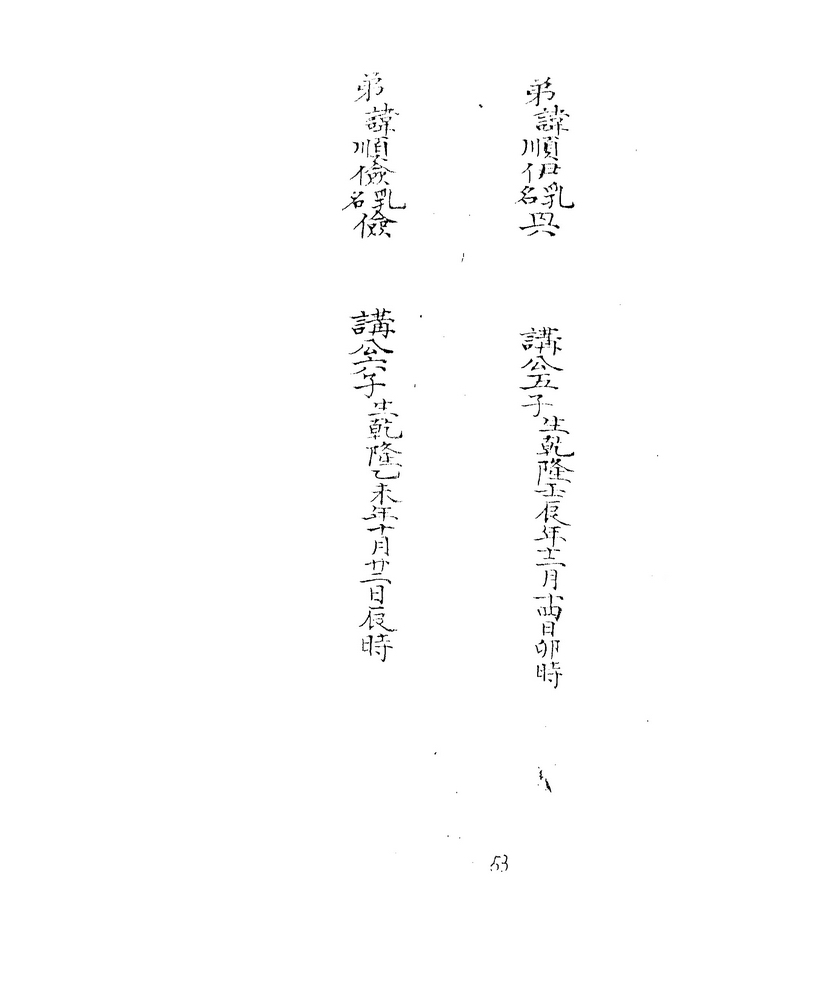 弟諱順伊乳名興
講公五子生乾隆壬辰年十二月十四日卯時
弟諱順儉乳名儉
講公六子生乾隆乙未年十月廿二日辰時
53